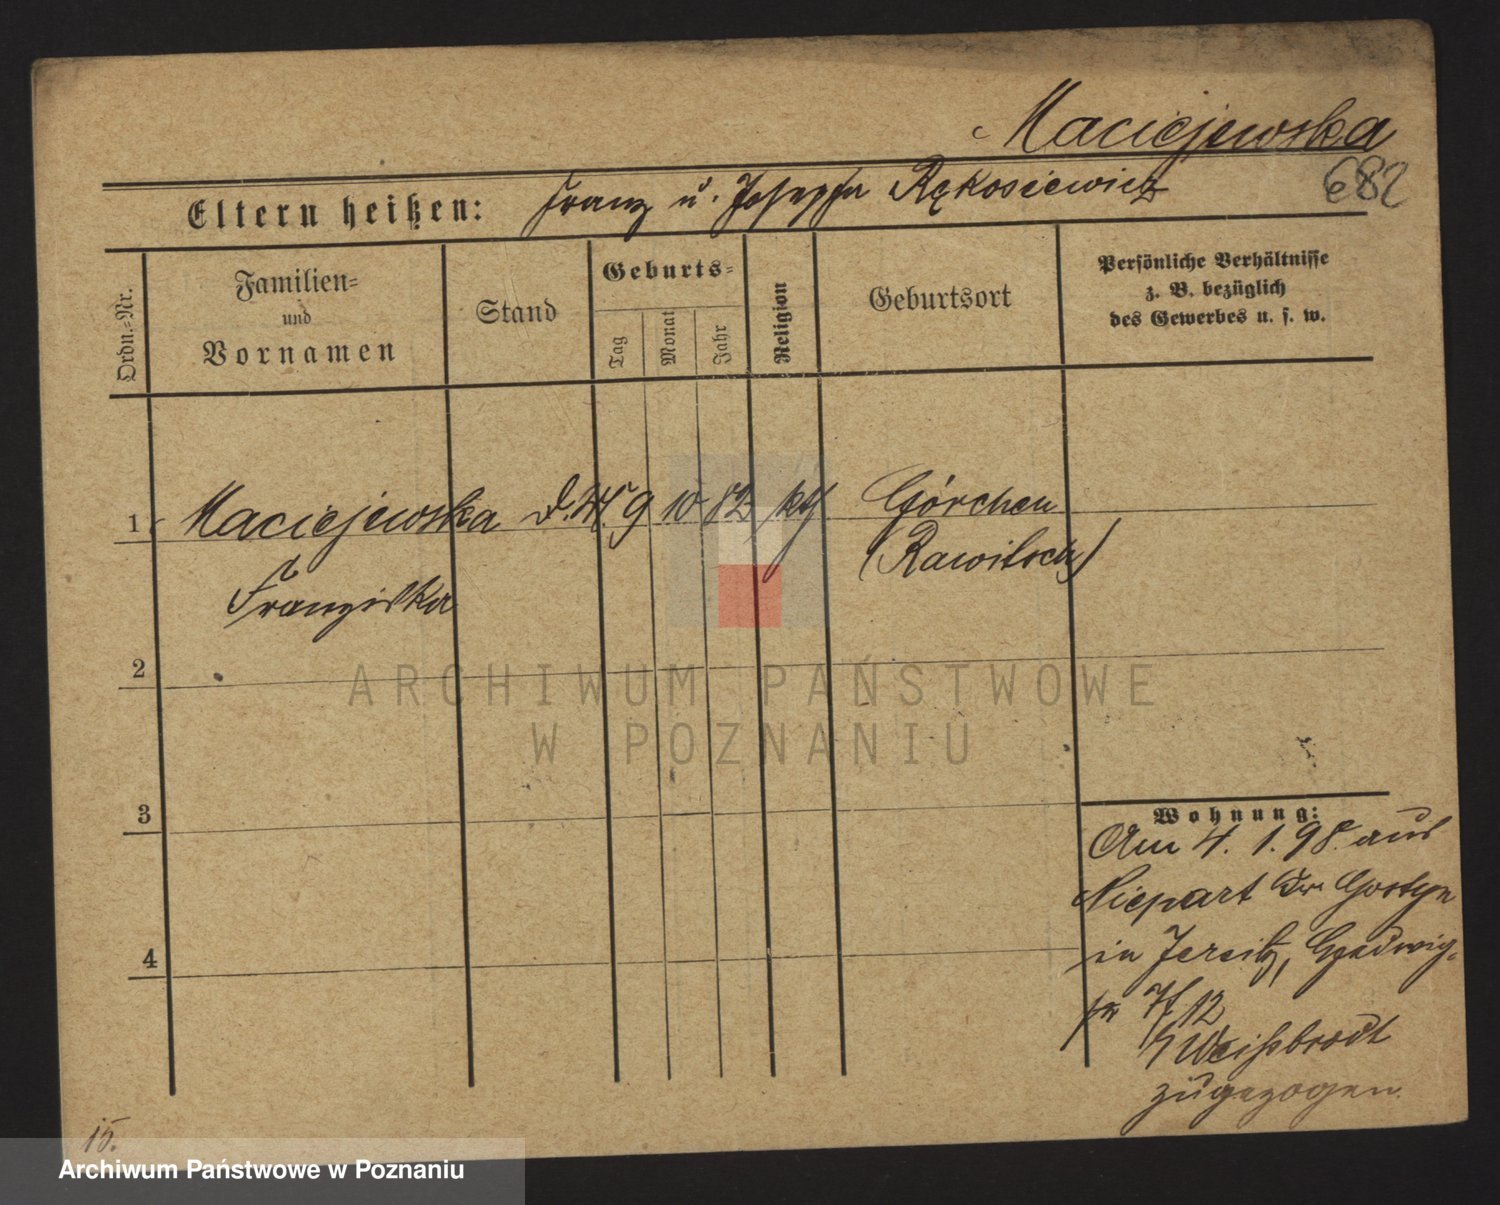 Maciejewska
682
Eltern heißen: Franz u. Josepha Rękosiewicz
Ordn.-Nr.
Familien-
und
Vornamen
Stand
Geburts-
Tag
Monat
Jahr
Religion
Geburtsort
Persönliche Verhältnisse
z. B. bezüglich
des Gewerbes u. s. w.
1 Maciejewska 9 10 82 kth Görchen
Franziska (Rawitsch)
2
3
4
Wohnung:
Am 4. 1. 98. aus
Niepart Kr. Gostyn
in Jersitz, Hedwig-
str 12
Weißbrodt
zugezogen.
15.
ARCHIWUM PAŃSTWOWE
W POZNANIU
Archiwum Państwowe w Poznaniu